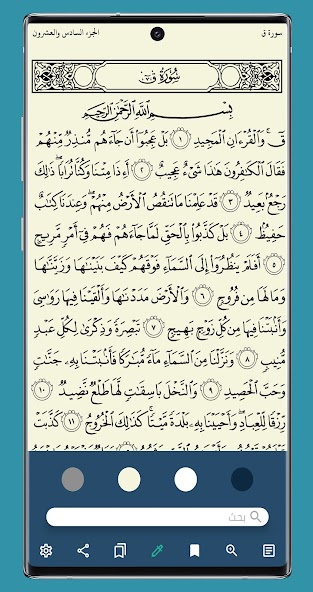 سورة ق
الجزء السادس والعشرون
سُورَةُ قٓ
بِسْمِ ٱللَّهِ ٱلرَّحْمَٰنِ ٱلرَّحِيمِ
قٓ ۚ وَٱلْقُرْءَانِ ٱلْمَجِيدِ ١ بَلْ عَجِبُوٓا۟ أَن جَآءَهُم مُّنذِرٌ مِّنْهُمْ
فَقَالَ ٱلْكَٰفِرُونَ هَٰذَا شَىْءٌ عَجِيبٌ ٢ أَءِذَا مِتْنَا وَكُنَّا تُرَابًا ۖ ذَٰلِكَ
رَجْعٌۢ بَعِيدٌ ٣ قَدْ عَلِمْنَا مَا تَنقُصُ ٱلْأَرْضُ مِنْهُمْ ۖ وَعِندَنَا كِتَٰبٌ
حَفِيظٌۢ ٤ بَلْ كَذَّبُوا۟ بِٱلْحَقِّ لَمَّا جَآءَهُمْ فَهُمْ فِىٓ أَمْرٍ مَّرِيجٍ
٥ أَفَلَمْ يَنظُرُوٓا۟ إِلَى ٱلسَّمَآءِ فَوْقَهُمْ كَيْفَ بَنَيْنَٰهَا وَزَيَّنَّٰهَا
وَمَا لَهَا مِن فُرُوجٍ ٦ وَٱلْأَرْضَ مَدَدْنَٰهَا وَأَلْقَيْنَا فِيهَا رَوَٰسِىَ
وَأَنۢبَتْنَا فِيهَا مِن كُلِّ زَوْجٍۭ بَهِيجٍ ٧ تَبْصِرَةً وَذِكْرَىٰ لِكُلِّ عَبْدٍ
مُّنِيبٍ ٨ وَنَزَّلْنَا مِنَ ٱلسَّمَآءِ مَآءً مُّبَٰرَكًا فَأَنۢبَتْنَا بِهِۦ جَنَّٰتٍ
وَحَبَّ ٱلْحَصِيدِ ٩ وَٱلنَّخْلَ بَاسِقَٰتٍ لَّهَا طَلْعٌ نَّضِيدٌ ١٠
رِّزْقًا لِّلْعِبَادِ ۖ وَأَحْيَيْنَا بِهِۦ بَلْدَةً مَّيْتًا ۚ كَذَٰلِكَ ٱلْخُرُوجُ ١١ كَذَّبَتْ
بحث